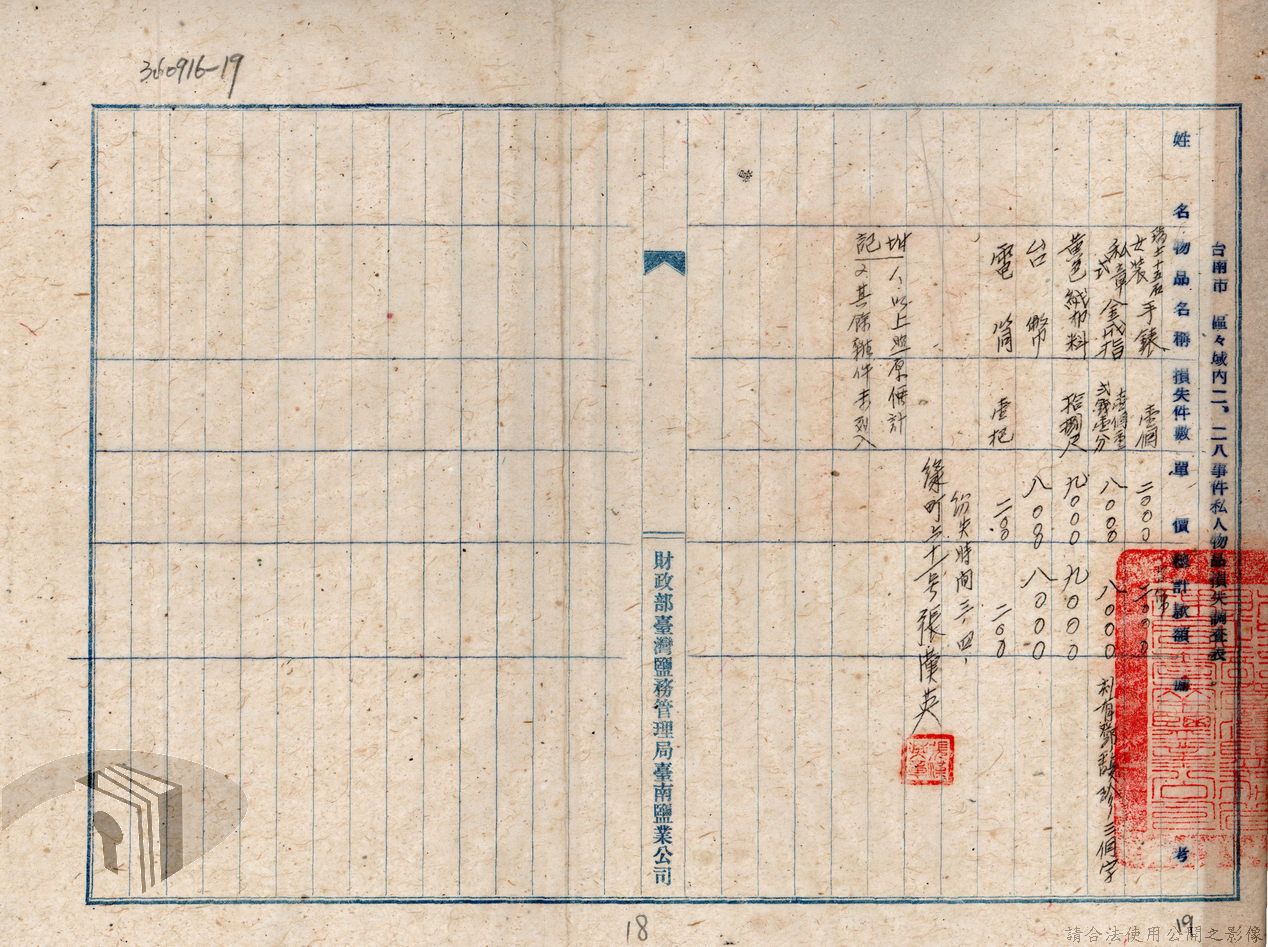 360916-19
台南市 區々域内二、二八事件私人物品損失調查表
姓名 物品名稱 損失件數 單價 總計款額 備考
瑞士十五石
女裝手錶 壹個 二〇〇〇 二〇〇〇
私章式金戒指 壹個重弍錢壹分 八〇〇〇 八〇〇〇 刻有鄧 珍三個字
黃色絨布料 拾捌尺 九〇〇〇 九〇〇〇
台幣 八〇〇〇 八〇〇〇
電筒 壹把 二〇〇 二〇〇
紛失時間三、四、
綠町 十一号 張漢英
附記 1、以上照原價計
2 其餘雜件未列入
財政部臺灣鹽務管理局臺南鹽業公司
18
19
請合法使用公開之影像